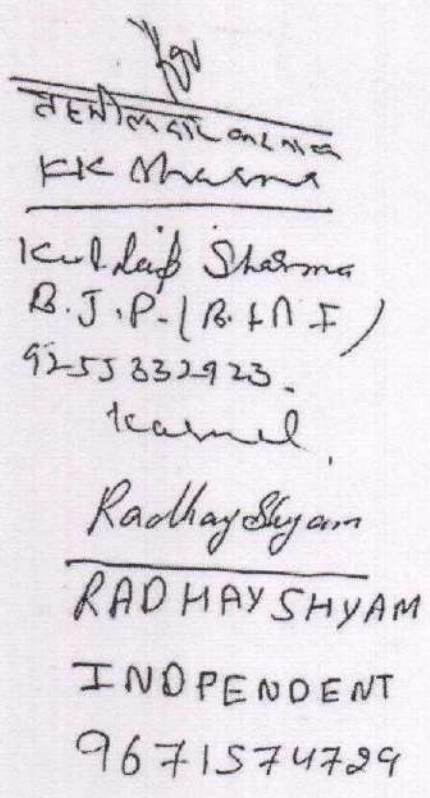 तहसीलदार करनाल
KK Sharma
Kuldip Sharma
B.J.P.
9255332923.
Karnal
Radhay Shyam
RADHAY SHYAM
INDPENDENT
9671574729